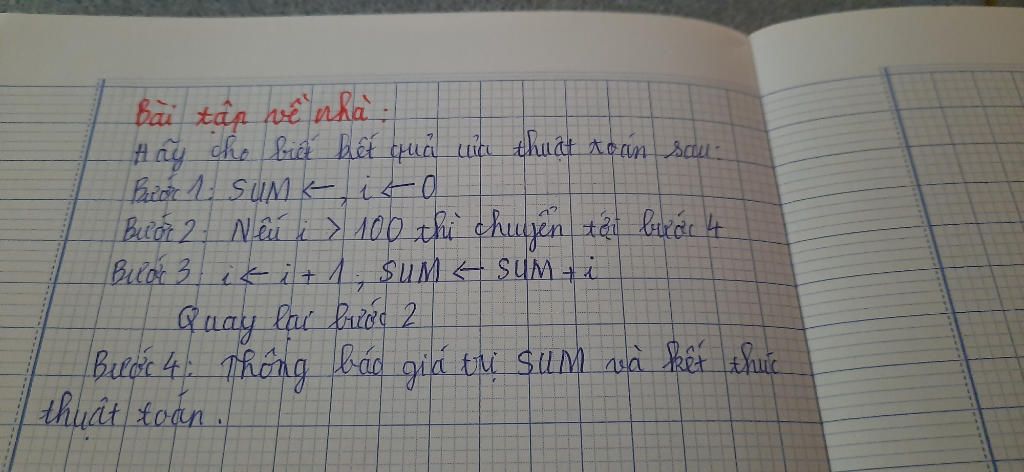 Bài tập về nhà:
Hãy cho biết kết quả của thuật toán sau:
Bước 1: SUM ←, i ← 0
Bước 2: Nếu i > 100 thì chuyển tới bước 4
Bước 3: i ← i + 1; SUM ← SUM + i
Quay lại bước 2
Bước 4: Thông báo giá trị SUM và kết thúc
thuật toán.